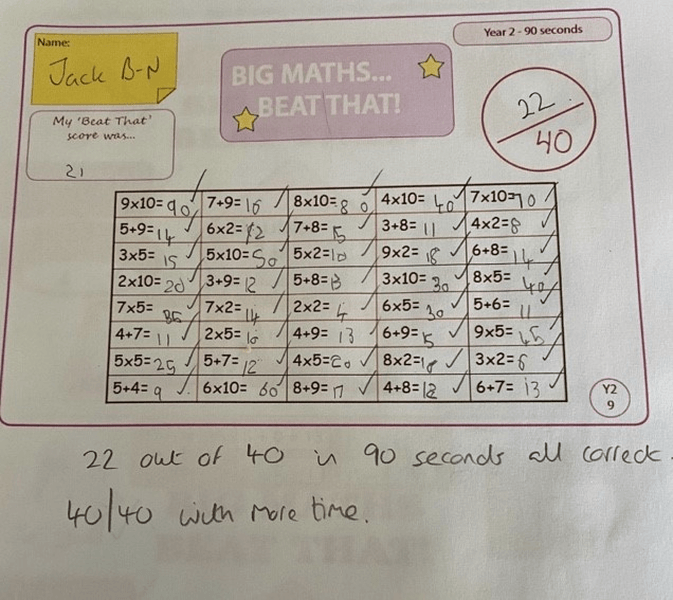 Name:
Jack B-N
Year 2 - 90 seconds
BIG MATHS...
BEAT THAT!
My 'Beat That'
score was...
21
22
40
9x10= 90 7+9= 16 8x10= 80 4x10= 40 7x10= 70
5+9= 14 6x2= 12 7+8= 15 3+8= 11 4x2= 8
3x5= 15 5x10= 50 5x2= 10 9x2= 18 6+8= 14
2x10= 20 3+9= 12 5+8= 13 3x10= 30 8x5= 40
7x5= 35 7x2= 14 2x2= 4 6x5= 30 5+6= 11
4+7= 11 2x5= 10 4+9= 13 6+9= 15 9x5= 45
5x5= 25 5+7= 12 4x5= 20 8x2= 16 3x2= 6
5+4= 9 6x10= 60 8+9= 17 4+8= 12 6+7= 13
Y2
9
22 out of 40 in 90 seconds all correct.
40/40 with more time.